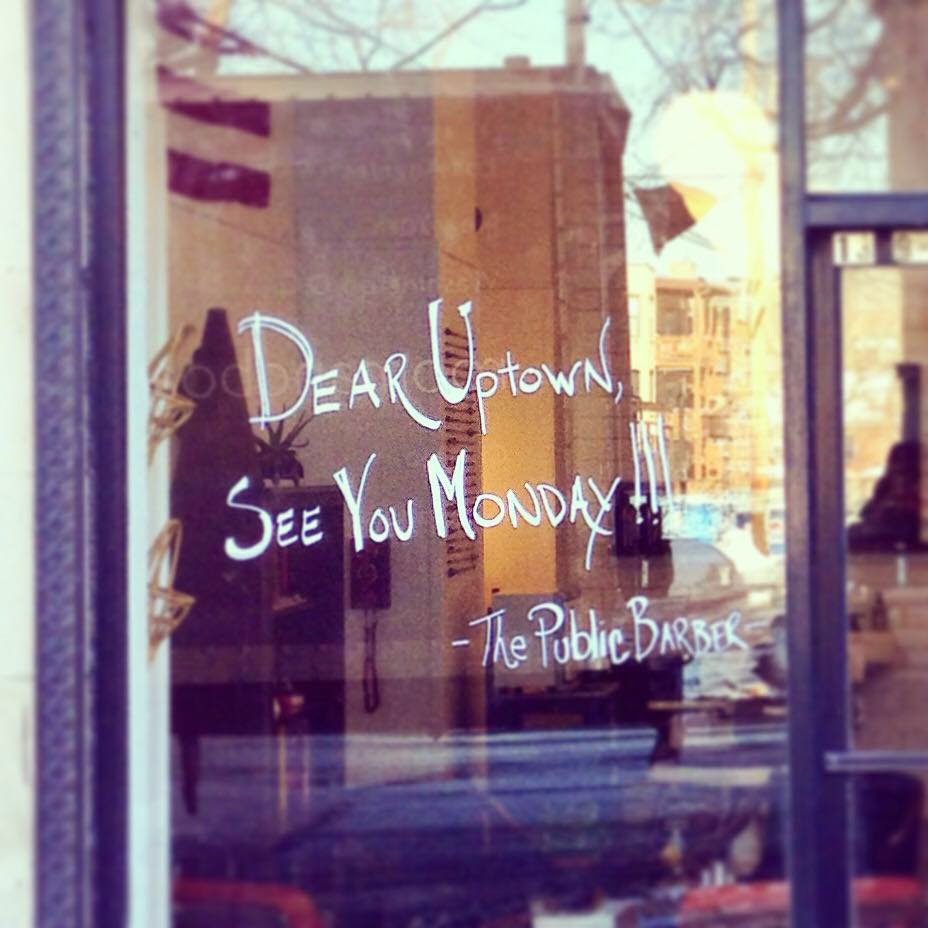 DEAR UptowN,
SEE YOU MONDAY!!!
-The Public BARBER-